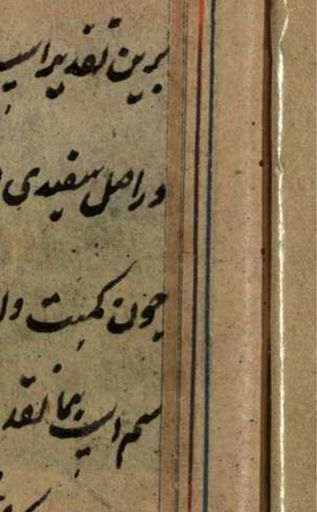 برین تقدیر اسپ
در اصل سفیدی
چون کمیت و
سم اسپ بها نقد